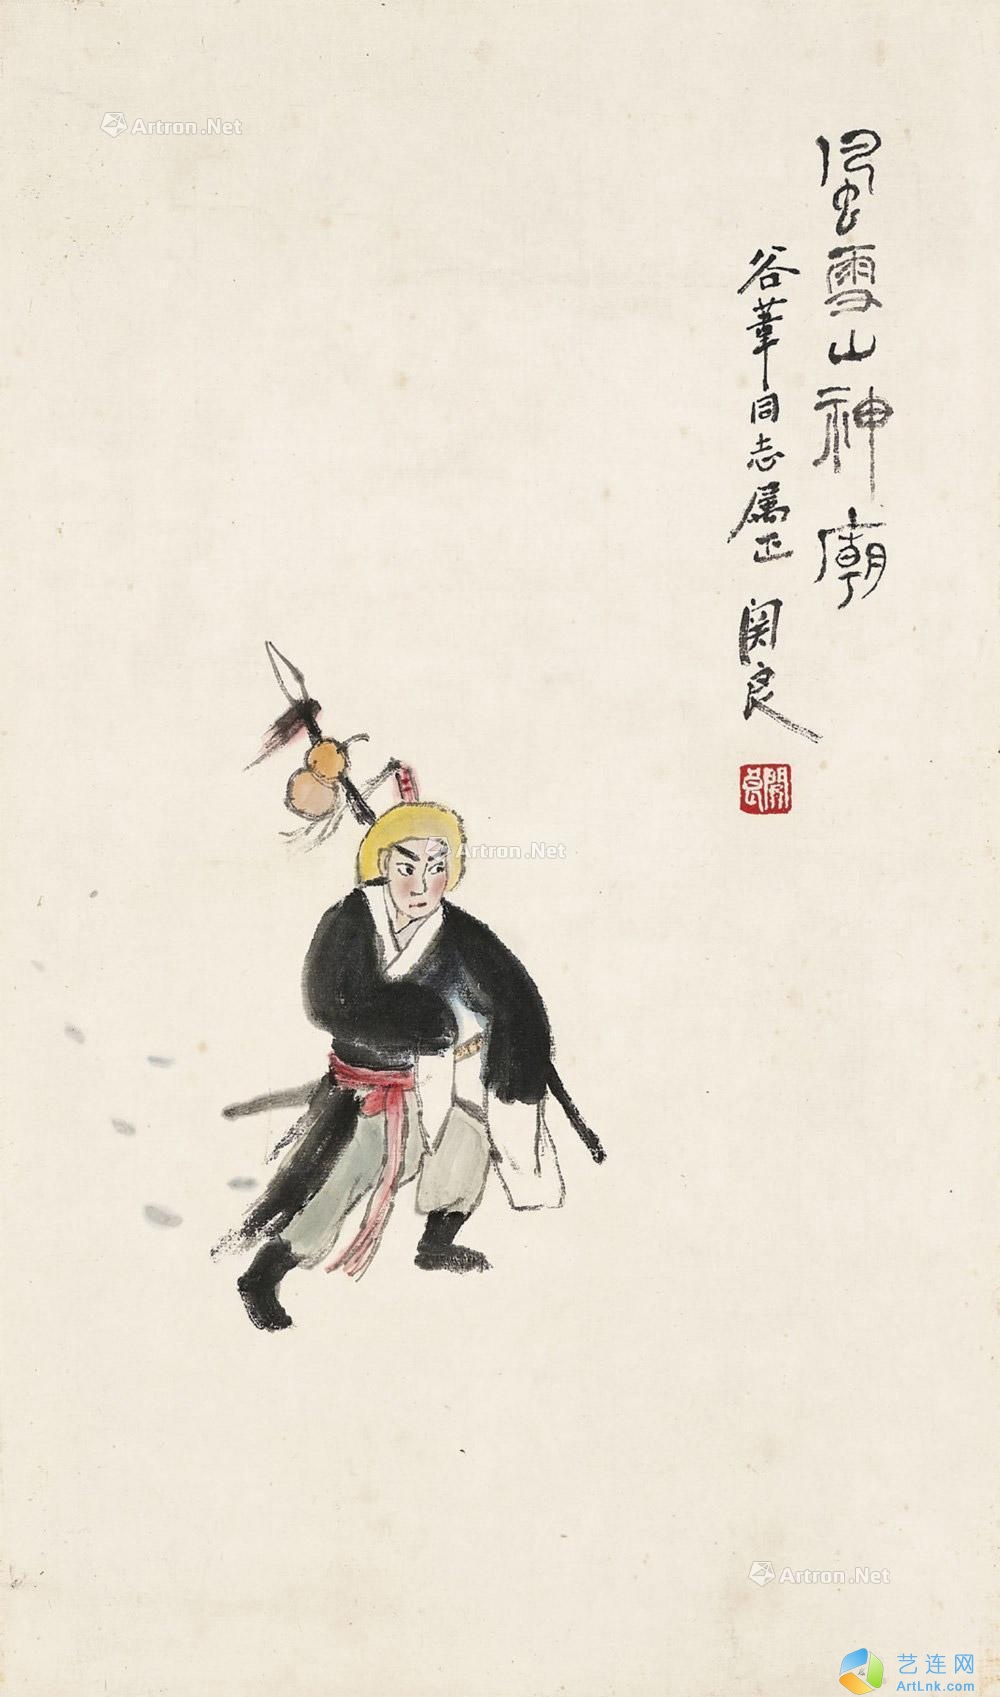 風雪山神廟
谷葦同志屬正 関良
關良
Artron.Net
Artron.Net
Artron.Net
艺连网
ArtLnk.com